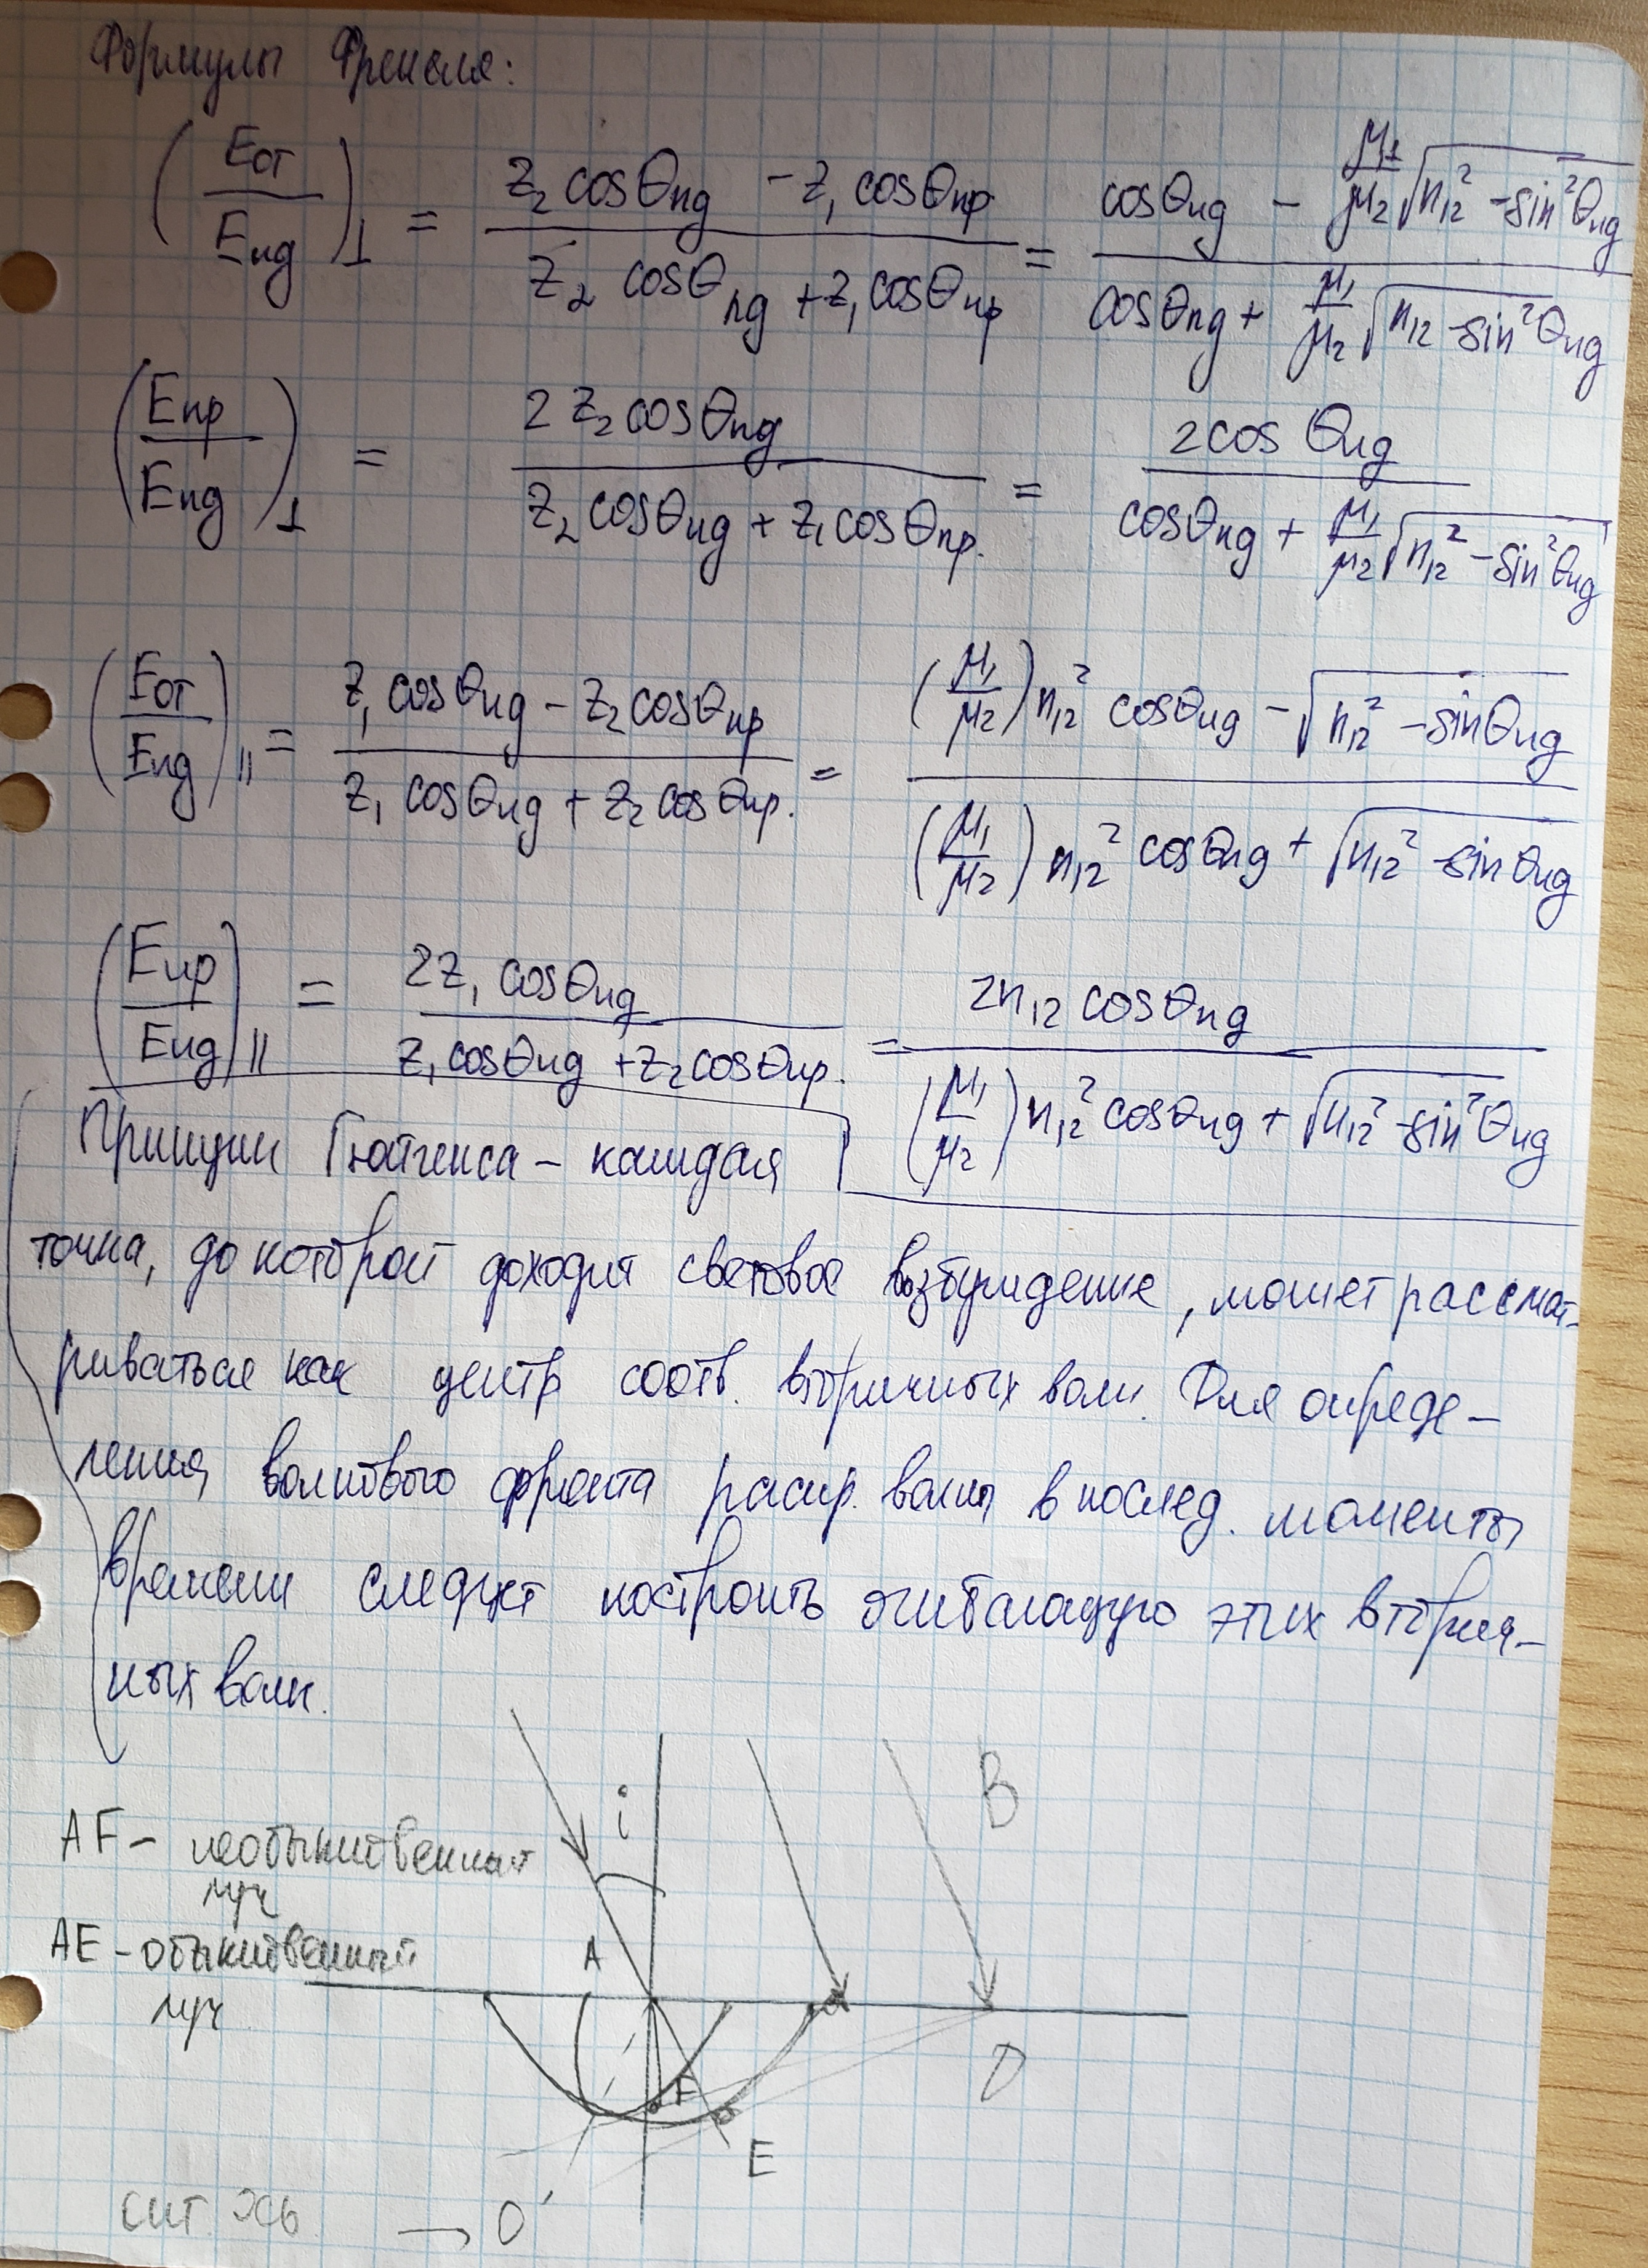 Формулы Френеля:
(Eот/Eпд)⊥ = (z₂cosθпд - z₁cosθпр)/(z₂ cosθпд + z₁cosθпр) = (cosθпд - μ₁/μ₂ √(n₁₂² - sin²θпд))/(cosθпд + μ₁/μ₂ √(n₁₂ - sin²θпд))
(Eпр/Eпд)⊥ = (2 z₂cosθпд)/(z₂cosθпд + z₁cosθпр.) = (2cos θпд)/(cosθпд + μ₁/μ₂ √(n₁₂² - sin²θпд))
(Eот/Eпд)|| = (z₁ cosθпд - z₂cosθпр)/(z₁ cosθпд + z₂ cosθпр.) = ((μ₁/μ₂) n₁₂² cosθпд - √(n₁₂² - sinθпд))/((μ₁/μ₂) n₁₂² cosθпд + √(n₁₂² - sinθпд))
(Eпр/Eпд)|| = (2z₁ cosθпд)/(z₁cosθпд + z₂cosθпр.) = (2n₁₂ cosθпд)/((μ₁/μ₂) n₁₂² cosθпд + √(n₁₂² - sin²θпд))
Принцип Гюйгенса - каждая
точка, до которой доходит световое возбуждение, может рассмат-
риваться как центр соотв. вторичных волн. Для опреде-
ления волнового фронта распр. волны в послед. моменты
времени следует построить огибающую этих вторич-
ных волн.
i
B
AF - необыкновенный
луч
AE - обыкновенный
луч
A
F
D
E
опт. ось → O'